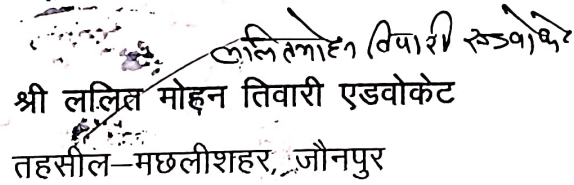 ललितमोहन तिवारी एडवोकेट
श्री ललित मोहन तिवारी एडवोकेट
तहसील–मछलीशहर, जौनपुर